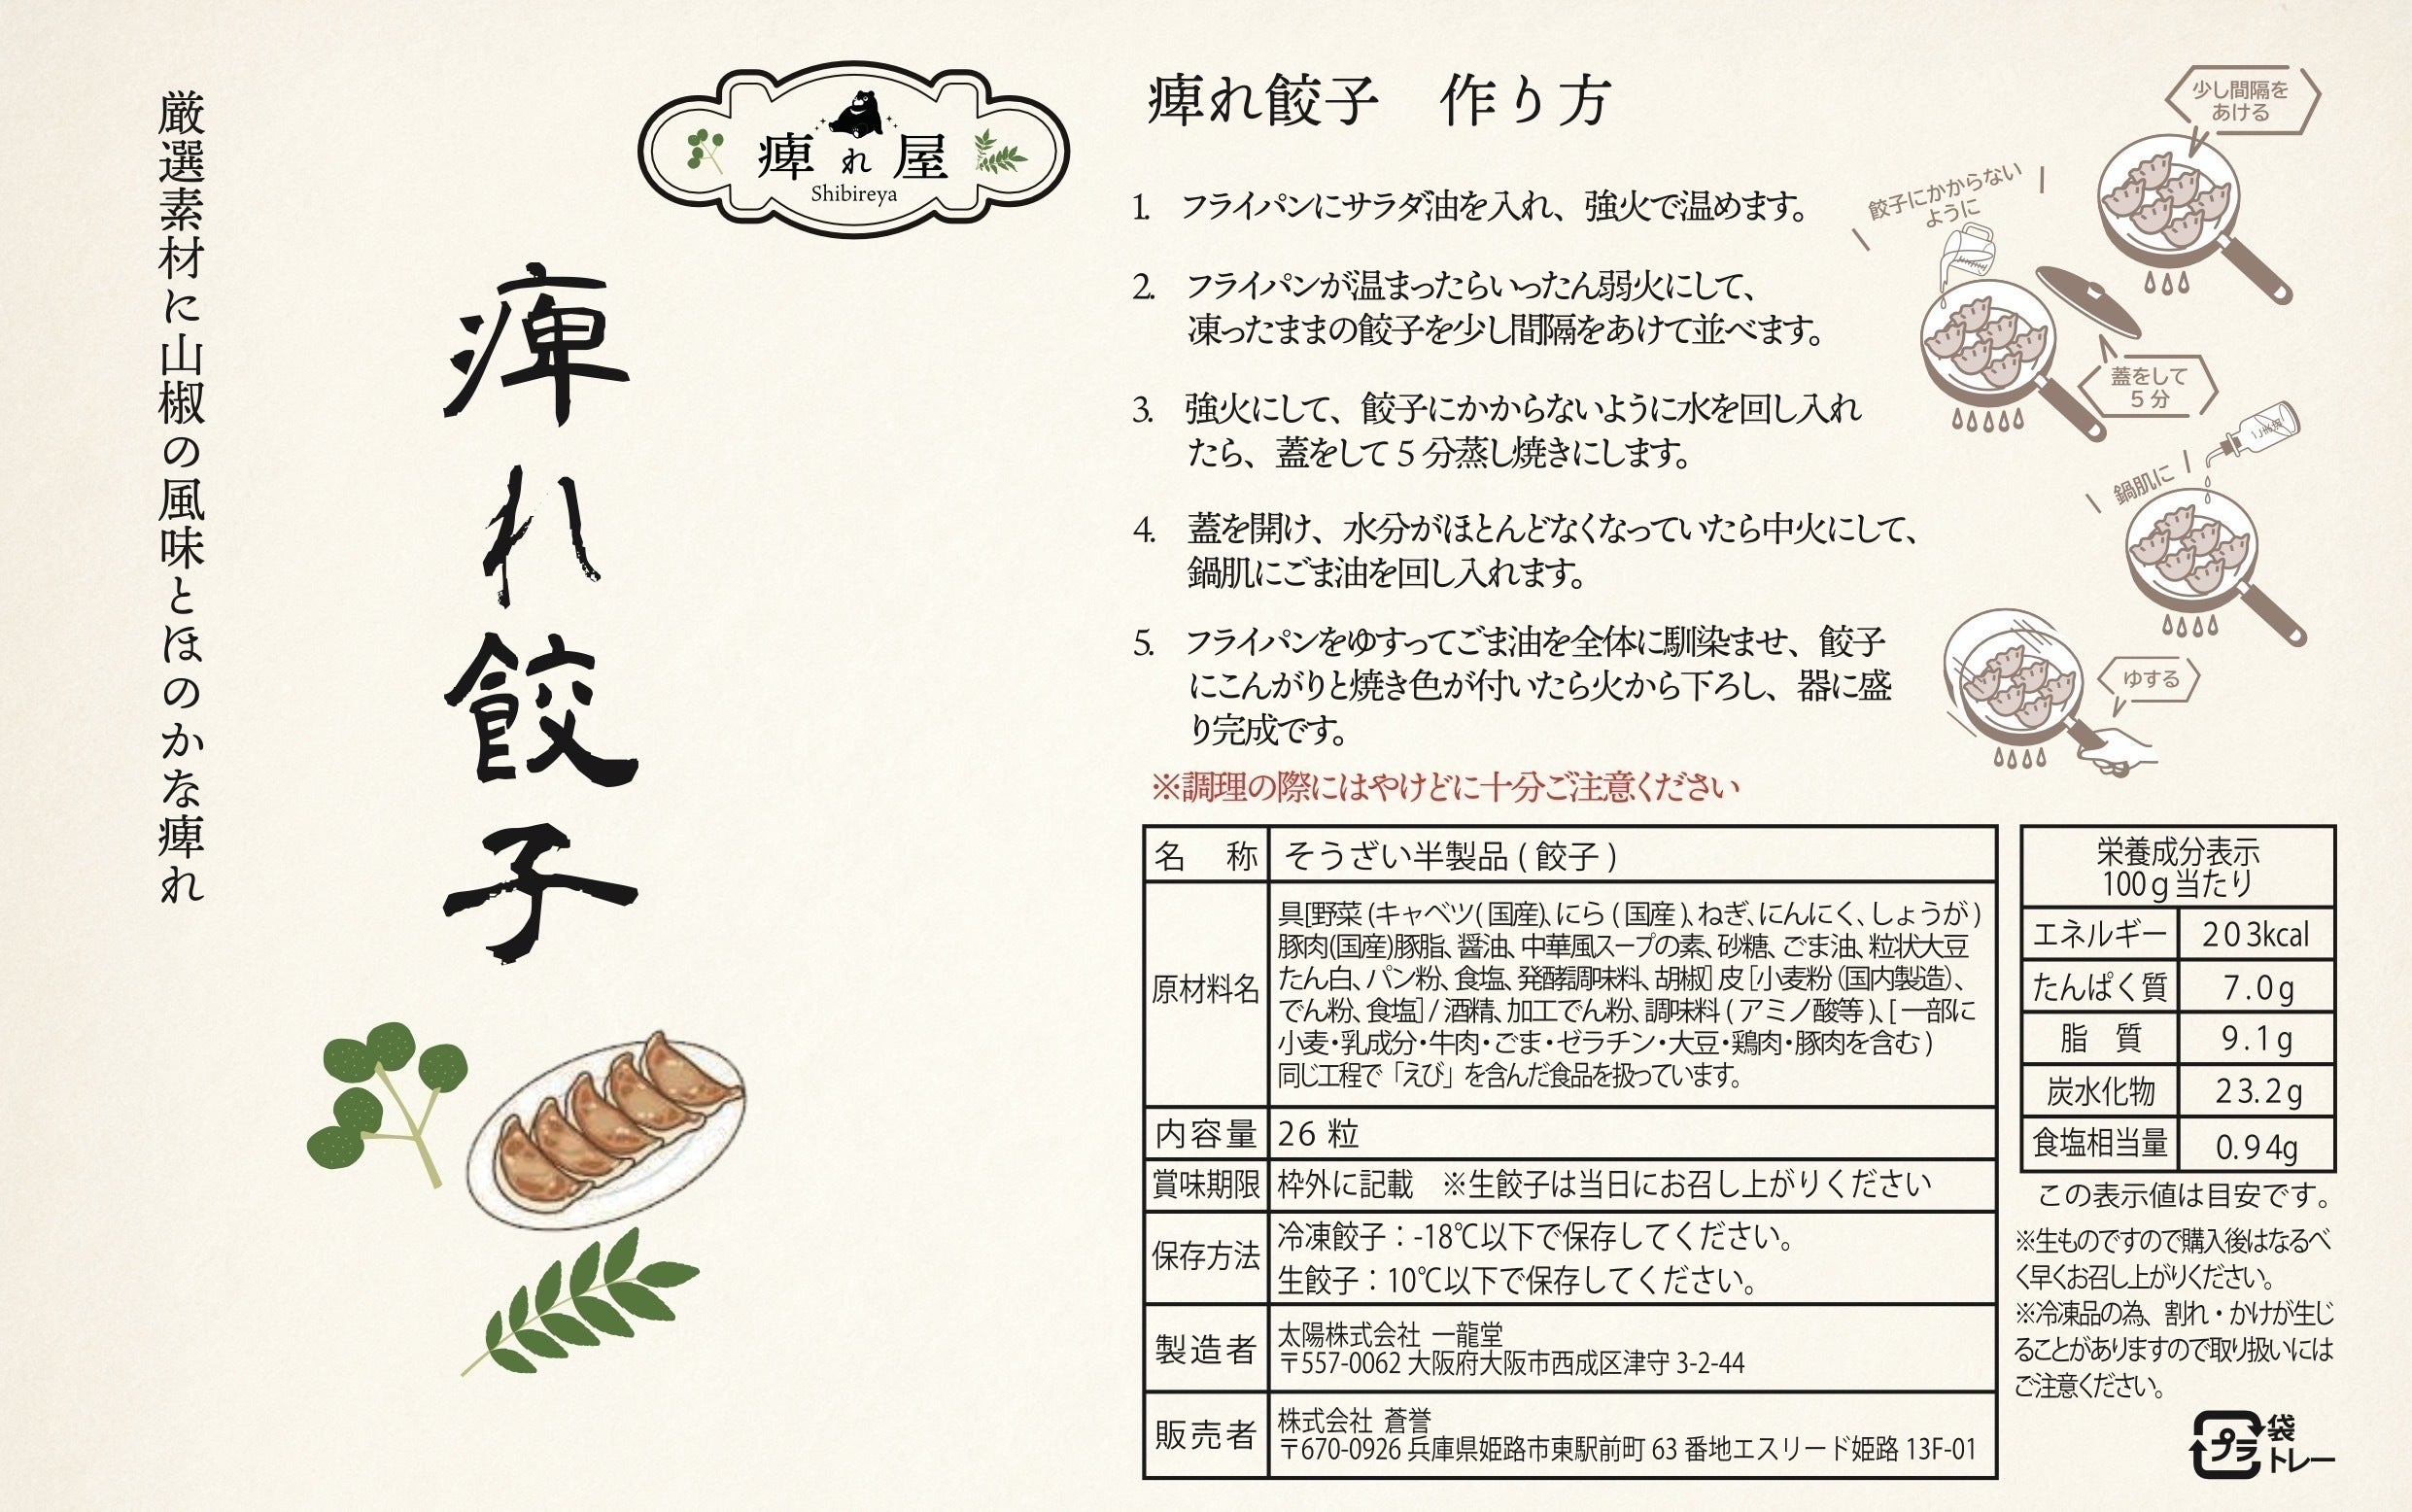 厳選素材に山椒の風味とほのかな痺れ
痺れ屋
Shibireya
痺れ餃子
痺れ餃子　作り方
1. フライパンにサラダ油を入れ、強火で温めます。
2. フライパンが温まったらいったん弱火にして、
凍ったままの餃子を少し間隔をあけて並べます。
3. 強火にして、餃子にかからないように水を回し入れ
たら、蓋をして5分蒸し焼きにします。
4. 蓋を開け、水分がほとんどなくなっていたら中火にして、
鍋肌にごま油を回し入れます。
5. フライパンをゆすってごま油を全体に馴染ませ、餃子
にこんがりと焼き色が付いたら火から下ろし、器に盛
り完成です。
※調理の際にはやけどに十分ご注意ください
少し間隔を
あける
餃子にかからない
ように
蓋をして
5分
鍋肌に
ゆする
名　称 そうざい半製品(餃子)
原材料名
具[野菜(キャベツ(国産)、にら(国産)、ねぎ、にんにく、しょうが)
豚肉(国産)豚脂、醤油、中華風スープの素、砂糖、ごま油、粒状大豆
たん白、パン粉、食塩、発酵調味料、胡椒]皮[小麦粉(国内製造)、
でん粉、食塩]/酒精、加工でん粉、調味料(アミノ酸等)、[一部に
小麦・乳成分・牛肉・ごま・ゼラチン・大豆・鶏肉・豚肉を含む)
同じ工程で「えび」を含んだ食品を扱っています。
内容量 26粒
賞味期限 枠外に記載　※生餃子は当日にお召し上がりください
保存方法
冷凍餃子：-18℃以下で保存してください。
生餃子：10℃以下で保存してください。
製造者
太陽株式会社 一龍堂
〒557-0062 大阪府大阪市西成区津守 3-2-44
販売者
株式会社 蒼誉
〒670-0926 兵庫県姫路市東駅前町63番地エスリード姫路 13F-01
栄養成分表示
100g当たり
エネルギー 203kcal
たんぱく質 7.0g
脂　質 9.1g
炭水化物 23.2g
食塩相当量 0.94g
この表示値は目安です。
※生ものですので購入後はなるべ
く早くお召し上がりください。
※冷凍品の為、割れ・かけが生じ
ることがありますので取り扱いには
ご注意ください。
プラ
袋
トレー